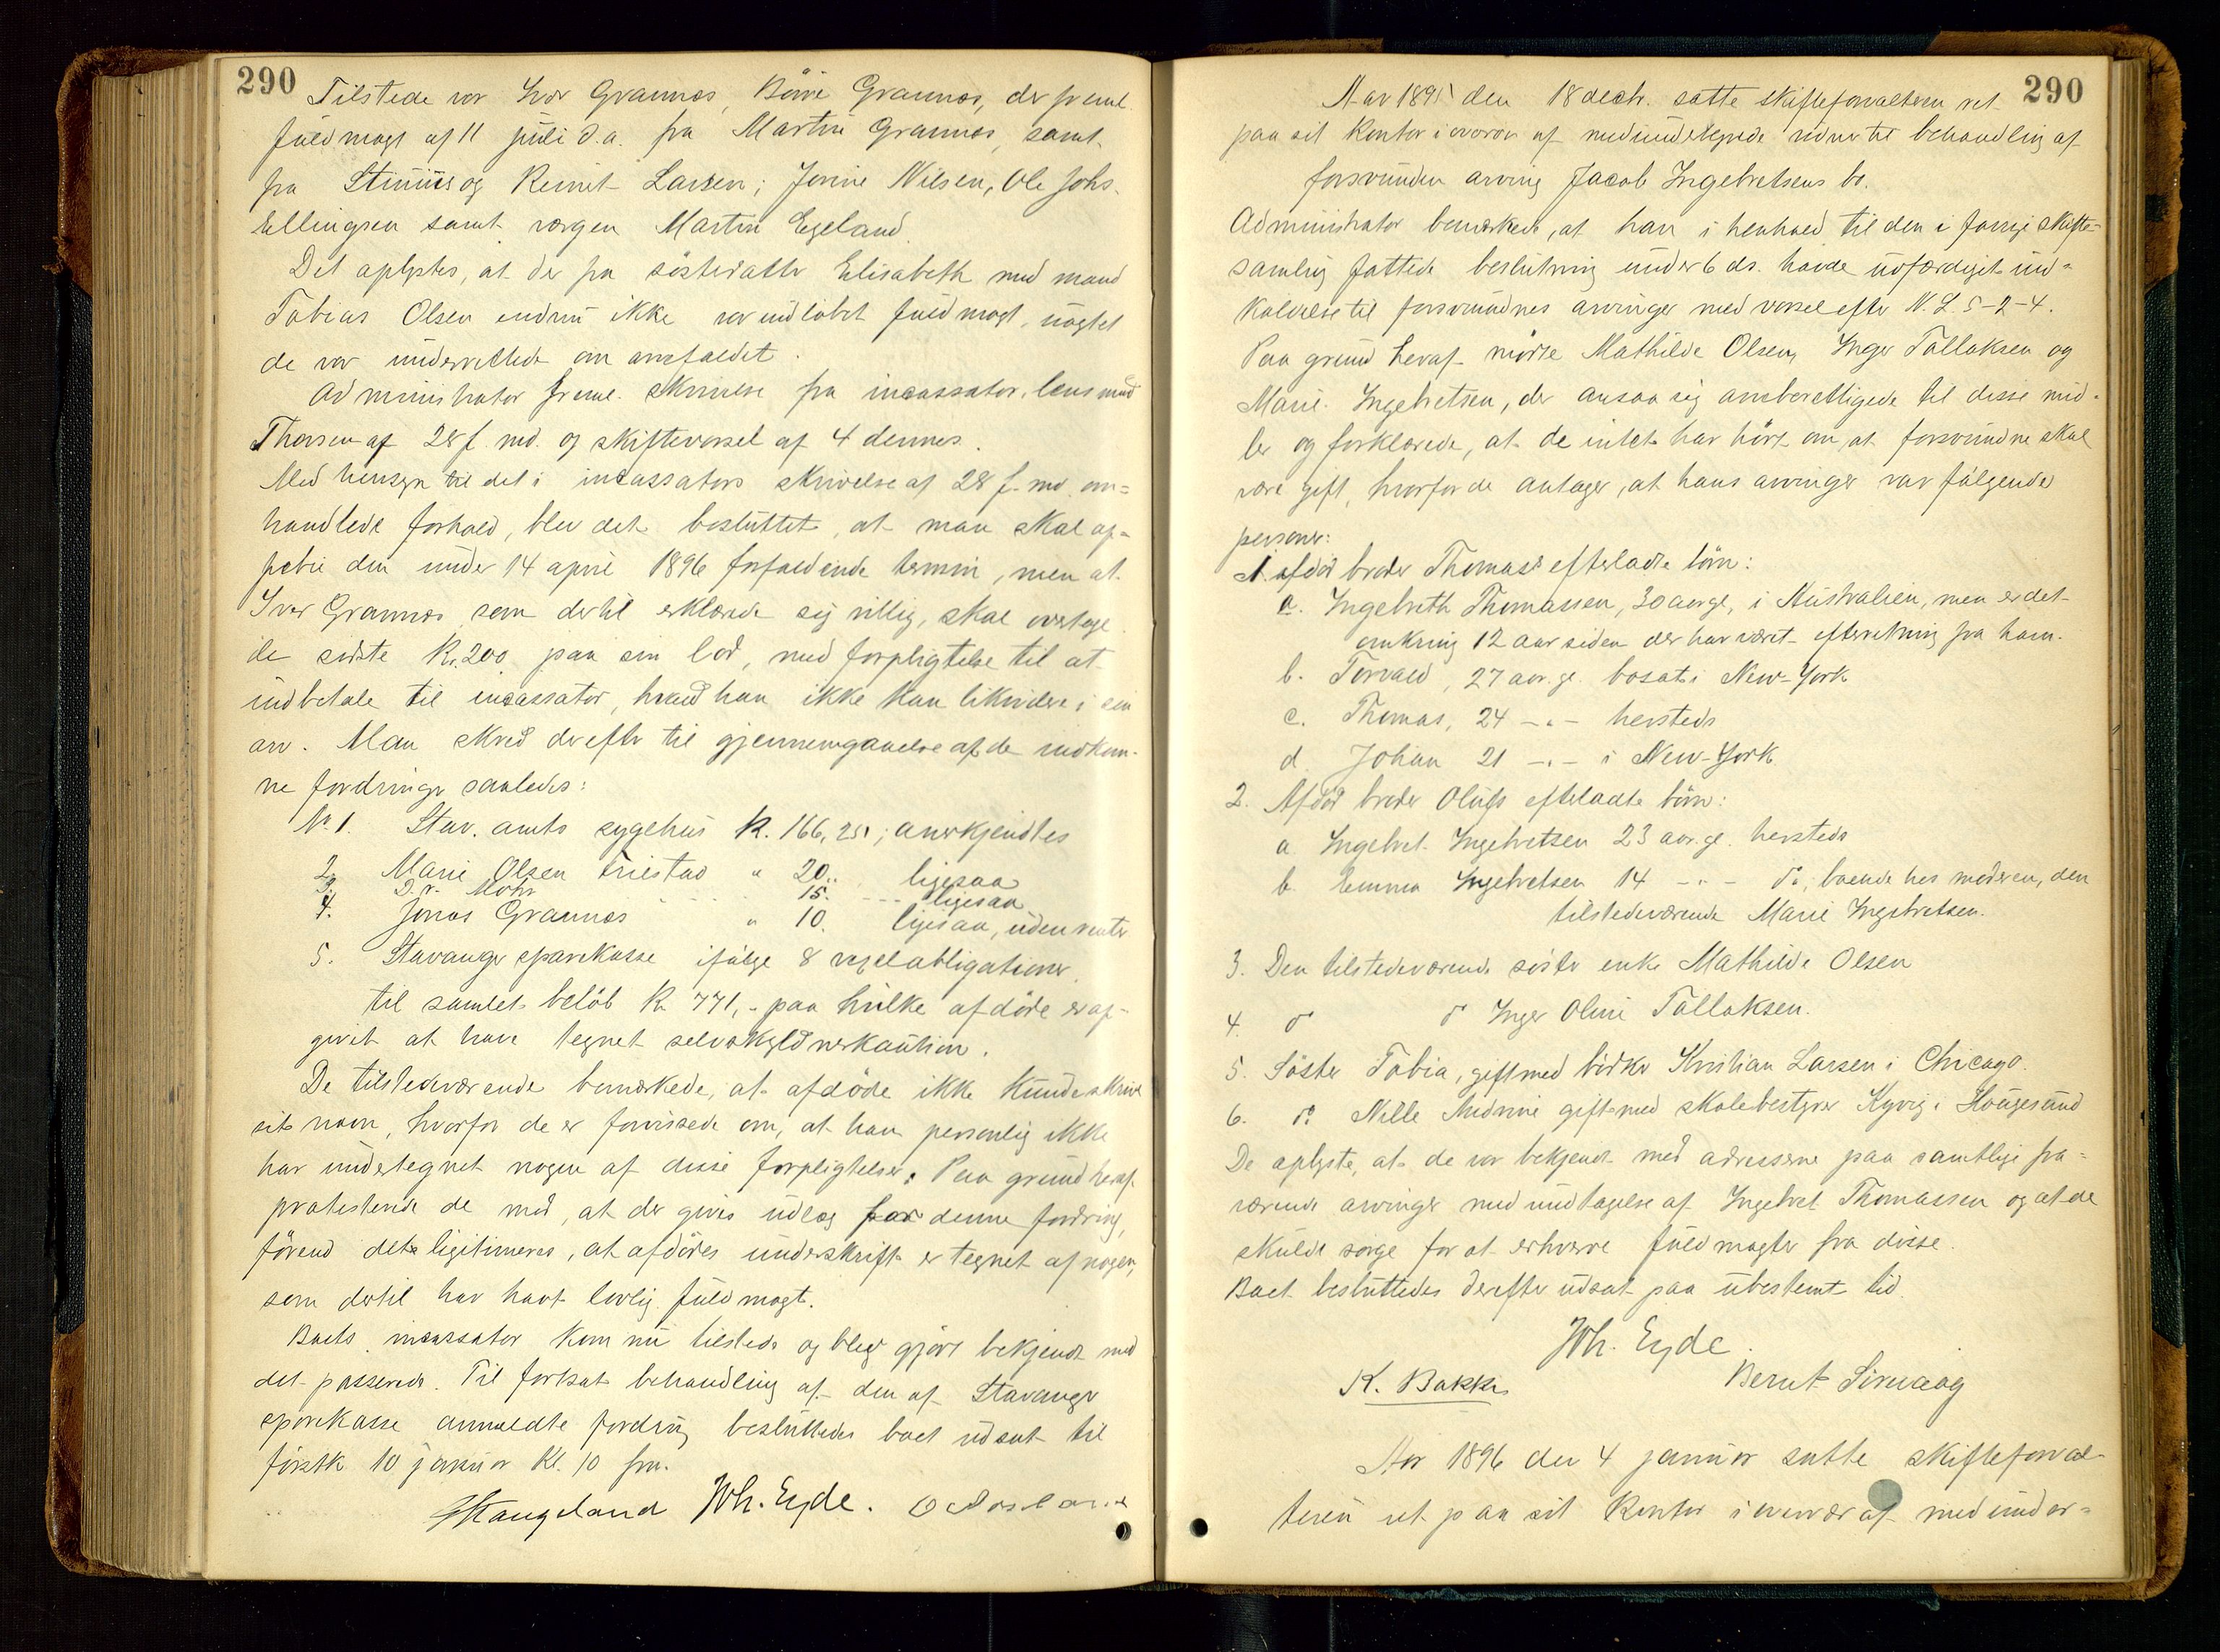 290
Tilstede var Ivar Grannes, Börre Grannes, der freml.
fuldmagt af 11 juli d.a. fra Martin Grannes, samt
fra og Reinet Larsen; Jorine Nilsen, Ole Johs.
Ellingsen samt vergen Martin Egeland.
Det oplystes, at der fra søsterdatter Elisabeth med mand
Tobias Olsen endnu ikke var indløbet fuldmagt, uagtet
de var underrettede om arvefaldet.
Administrator freml. skrivelse fra incassator, lensmand
Thorsen af 28 f. md. og skiftevarsel af 4 dennes.
Med hensyn til det i incassators skrivelse af 28 f. md. om-
handlede forhold, blev det besluttet, at man skal op-
pebie den under 14 april 1896 forfaldende termin, men at
Iver Grannes som dertil erklærede sig villig, skal overtage
de sidste Kr. 200 paa sin lod, med forpligtelse til at
indbetale til incassator, hvad han ikke kan likvidere i sin
arv. Man skred derefter til gjennemgaaelse af de indkom-
ne fordringer saaledes:
No 1. Stav. amts sygehus K. 166,25; anerkjendtes
2. Marie Olsen Friestad " 20.. ligesaa
3. D.r Mohr 15. ligesaa
4. Jonas Grannes " 10. ligesaa, uden renter
5. Stavanger sparekasse ifølge 8 vexelobligationer
til samlet beløb Kr 771,- paa hvilke afdøde er op-
givet at have tegnet selvskyldnerkaution.
De tilstedeværende bemærkede, at afdøde ikke kunde skrive
sit navn, hvorfor de er forvissede om, at han personlig ikke
har undertegnet nogen af disse forpligtelser. Paa grund heraf
protesterede de mod, at der gives udlæg for denne fordring,
førend det legitimeres, at afdødes underskrift er tegnet af nogen,
som dertil har havt lovlig fuldmagt.
Boets incassator kom nu tilstede og blev gjort bekjendt med
det passerede. Til fortsat behandling af den af Stavanger
sparekasse anmeldte fordring besluttedes boet udsat til
førstk. 10 januar Kl. 10 fm.
Stangeland Wh. Eyde. O Aasland
290
Aar 1895 den 18 decbr. satte skifteforvalteren ret
paa sit Kontor i overvær af medundertegnede vidner til behandling af
forsvunden arving Jacob Ingebretsens bo.
Administrator bemærkede, at han i henhold til den i forrige skifte-
samling fattede beslutning under 6 ds. havde udfærdiget ind-
kaldelse til forsvundnes arvinger med varsel efter N. L. 5-2-4.
Paa grund heraf mødte Mathilde Olsen, Inger Tollaksen og
Marie Ingebretsen, der ansaa sig arveberettigede til disse mid-
ler og forklarede, at de intet har hört om, at forsvundne skal
være gift, hvorfor de antager, at hans arvinger var følgende
personer:
1. afdöd broder Thomas's efterladte börn:
a. Ingebreth Thomassen, 30 aar gl, i Australien, men er det
omkring 12 aar siden der har været efterretning fra ham.
b. Torvald, 27 aar gl. bosat i New-York
c. Thomas, 24 -"- hersteds
d. Johan 21 -"- i New-York
2. Afdöd broder Olufs efterladte börn:
a. Ingebret Ingebretsen 23 aar gl. hersteds
b. Emma Ingebretsen 14 -"- do, boende hos moderen, den
tilstedeværende Marie Ingebretsen.
3. Den tilstedeværende søster enke Mathilde Olsen
4. do do Inger Oline Tollaksen.
5. Søster Tobia, gift med bödker Kristian Larsen i Chicago.
6. do Nille gift med skolebestyrer Kyvig i Hougesund
De oplyste, at de var bekjendt med adresserne paa samtlige fra-
værende arvinger med undtagelse af Ingebret Thomassen og at de
skulde sørge for at erhverve fuldmagter fra disse.
Boet besluttedes derefter udsat paa ubestemt tid.
Wh. Eyde.
K. Bakke Bernt Sirevaag
Aar 1896 den 4 januar satte skifteforval-
teren ret paa sit Kontor i overvær af medunder-